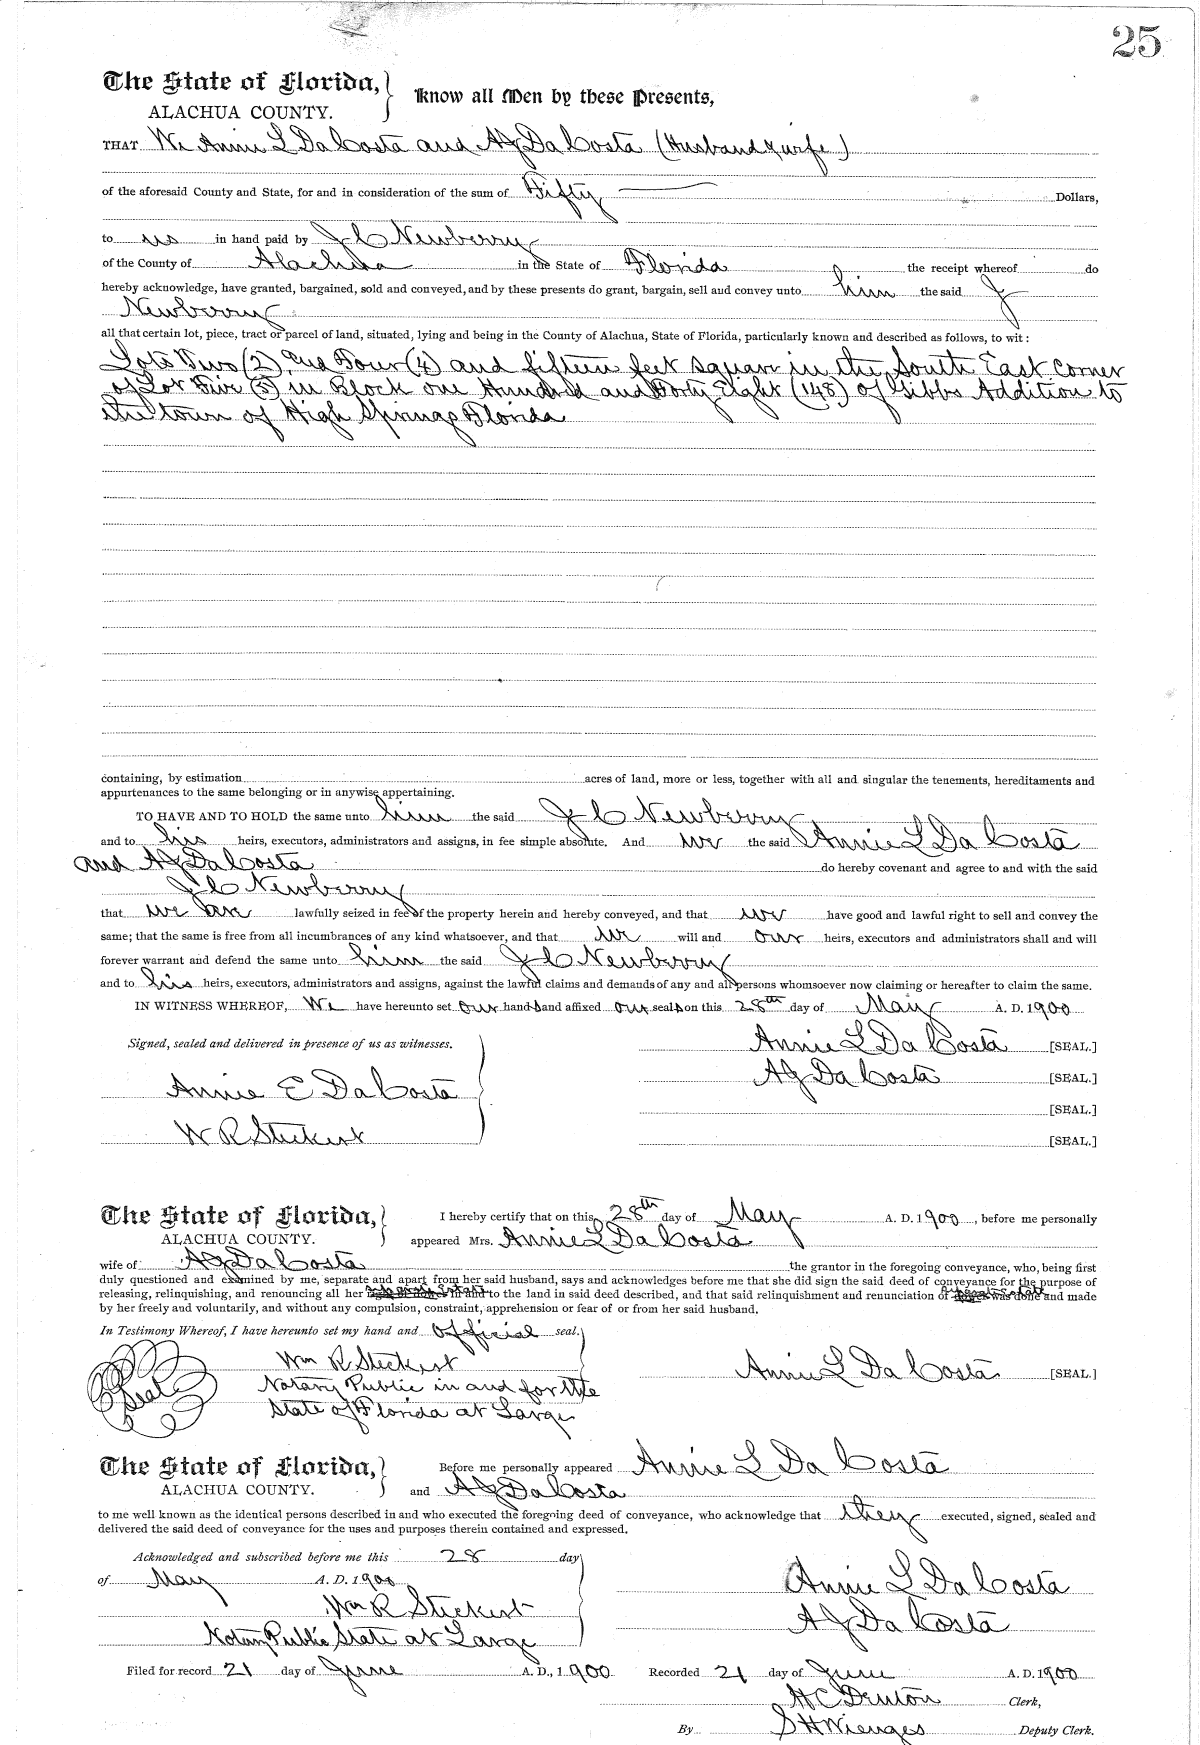 25
The State of Florida, Know all Men by these Presents,
ALACHUA COUNTY.
THAT We Annie L DaCosta and AJ DaCosta (Husband & wife)
of the aforesaid County and State, for and in consideration of the sum of Fifty Dollars,
to us in hand paid by J C Newberry
of the County of Alachua in the State of Florida the receipt whereof do
hereby acknowledge, have granted, bargained, sold and conveyed, and by these presents do grant, bargain, sell and convey unto him the said J
Newberry
all that certain lot, piece, tract or parcel of land, situated, lying and being in the County of Alachua, State of Florida, particularly known and described as follows, to wit:
Lots Two (2) and Four (4) and fifteen feet square in the South East corner
of Lot Five (5) in Block one Hundred and Forty Eight (148) of Gibbs Addition to
the town of High Springs Florida
containing, by estimation acres of land, more or less, together with all and singular the tenements, hereditaments and
appurtenances to the same belonging or in anywise appertaining.
TO HAVE AND TO HOLD the same unto him the said J C Newberry
and to his heirs, executors, administrators and assigns, in fee simple absolute. And we the said Annie L DaCosta
and AJ DaCosta do hereby covenant and agree to and with the said
J C Newberry
that we are lawfully seized in fee of the property herein and hereby conveyed, and that we have good and lawful right to sell and convey the
same; that the same is free from all incumbrances of any kind whatsoever, and that we will and our heirs, executors and administrators shall and will
forever warrant and defend the same unto him the said J C Newberry
and to his heirs, executors, administrators and assigns, against the lawful claims and demands of any and all persons whomsoever now claiming or hereafter to claim the same.
IN WITNESS WHEREOF, We have hereunto set our hands and affixed our seals on this 28th day of May A. D. 1900
Signed, sealed and delivered in presence of us as witnesses. Annie L DaCosta [SEAL.]
AJ DaCosta [SEAL.]
Annie E DaCosta [SEAL.]
W R Steckert [SEAL.]
The State of Florida, I hereby certify that on this 28th day of May A. D. 1900, before me personally
ALACHUA COUNTY. appeared Mrs. Annie L DaCosta
wife of AJ DaCosta the grantor in the foregoing conveyance, who, being first
duly questioned and examined by me, separate and apart from her said husband, says and acknowledges before me that she did sign the said deed of conveyance for the purpose of
releasing, relinquishing, and renouncing all her separate estate to the land in said deed described, and that said relinquishment and renunciation of was done and made
by her freely and voluntarily, and without any compulsion, constraint, apprehension or fear of or from her said husband.
In Testimony Whereof, I have hereunto set my hand and official seal.
Wm R Steckert Annie L DaCosta [SEAL.]
Seal Notary Public in and for the
State of Florida at Large
The State of Florida, Before me personally appeared Annie L DaCosta
ALACHUA COUNTY. and AJ DaCosta
to me well known as the identical persons described in and who executed the foregoing deed of conveyance, who acknowledge that they executed, signed, sealed and
delivered the said deed of conveyance for the uses and purposes therein contained and expressed.
Acknowledged and subscribed before me this 28 day
of May A. D. 1900 Annie L DaCosta
Wm R Steckert AJ DaCosta
Notary Public State at Large
Filed for record 21 day of June A. D., 1900 Recorded 21 day of June A. D. 1900
H C Denton Clerk,
By S H Wienges Deputy Clerk.